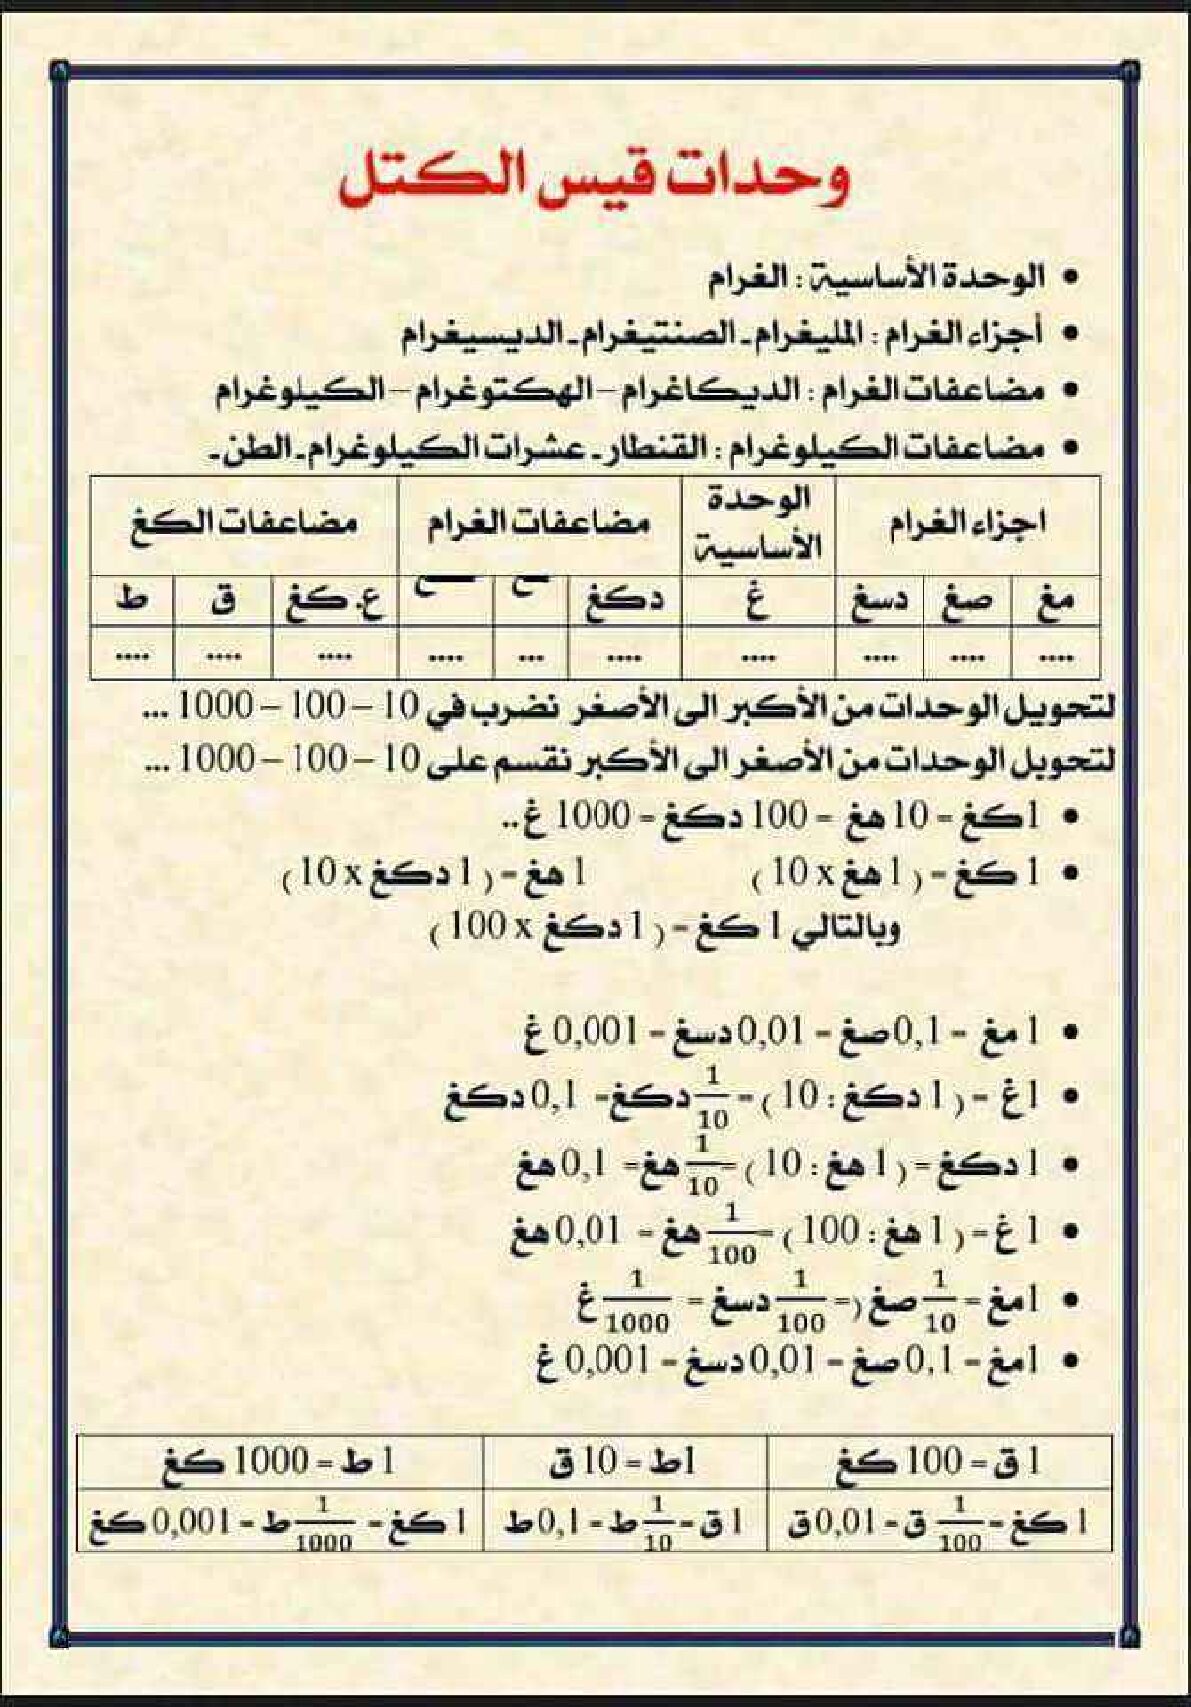 وحدات قيس الكتل
• الوحدة الأساسية : الغرام
• أجزاء الغرام : المليغرام ـ الصنتيغرام ـ الديسيغرام
• مضاعفات الغرام : الديكاغرام – الهكتوغرام – الكيلوغرام
• مضاعفات الكيلوغرام : القنطار ـ عشرات الكيلوغرام ـ الطن ـ
اجزاء الغرام | الوحدة الأساسية | مضاعفات الغرام | مضاعفات الكغ
مغ | صغ | دسغ | غ | دكغ | | | ع.كغ | ق | ط
.... | .... | .... | .... | .... | ... | .... | .... | .... | ....
لتحويل الوحدات من الأكبر الى الأصغر نضرب في 10 – 100 – 1000 ...
لتحويل الوحدات من الأصغر الى الأكبر نقسم على 10 – 100 – 1000 ...
• 1كغ = 10هغ = 100 دكغ = 1000 غ ..
• 1 كغ = ( 1هغ x 10 ) 1 هغ = ( 1 دكغ x 10 )
وبالتالي 1 كغ = ( 1 دكغ x 100 )
• 1 مغ = 0,1صغ = 0,01دسغ = 0,001 غ
• 1غ = ( 1 دكغ : 10 ) = 1/10 دكغ = 0,1 دكغ
• 1 دكغ = ( 1 هغ : 10 ) = 1/10 هغ = 0,1 هغ
• 1 غ = ( 1 هغ : 100 ) = 1/100 هغ = 0,01 هغ
• 1مغ = 1/10 صغ (= 1/100 دسغ = 1/1000 غ
• 1مغ = 0,1 صغ = 0,01 دسغ = 0,001 غ
1 ق = 100 كغ | 1ط = 10 ق | 1 ط = 1000 كغ
1 كغ = 1/100 ق = 0,01ق | 1 ق = 1/10 ط = 0,1ط | 1 كغ = 1/1000 ط = 0,001 كغ